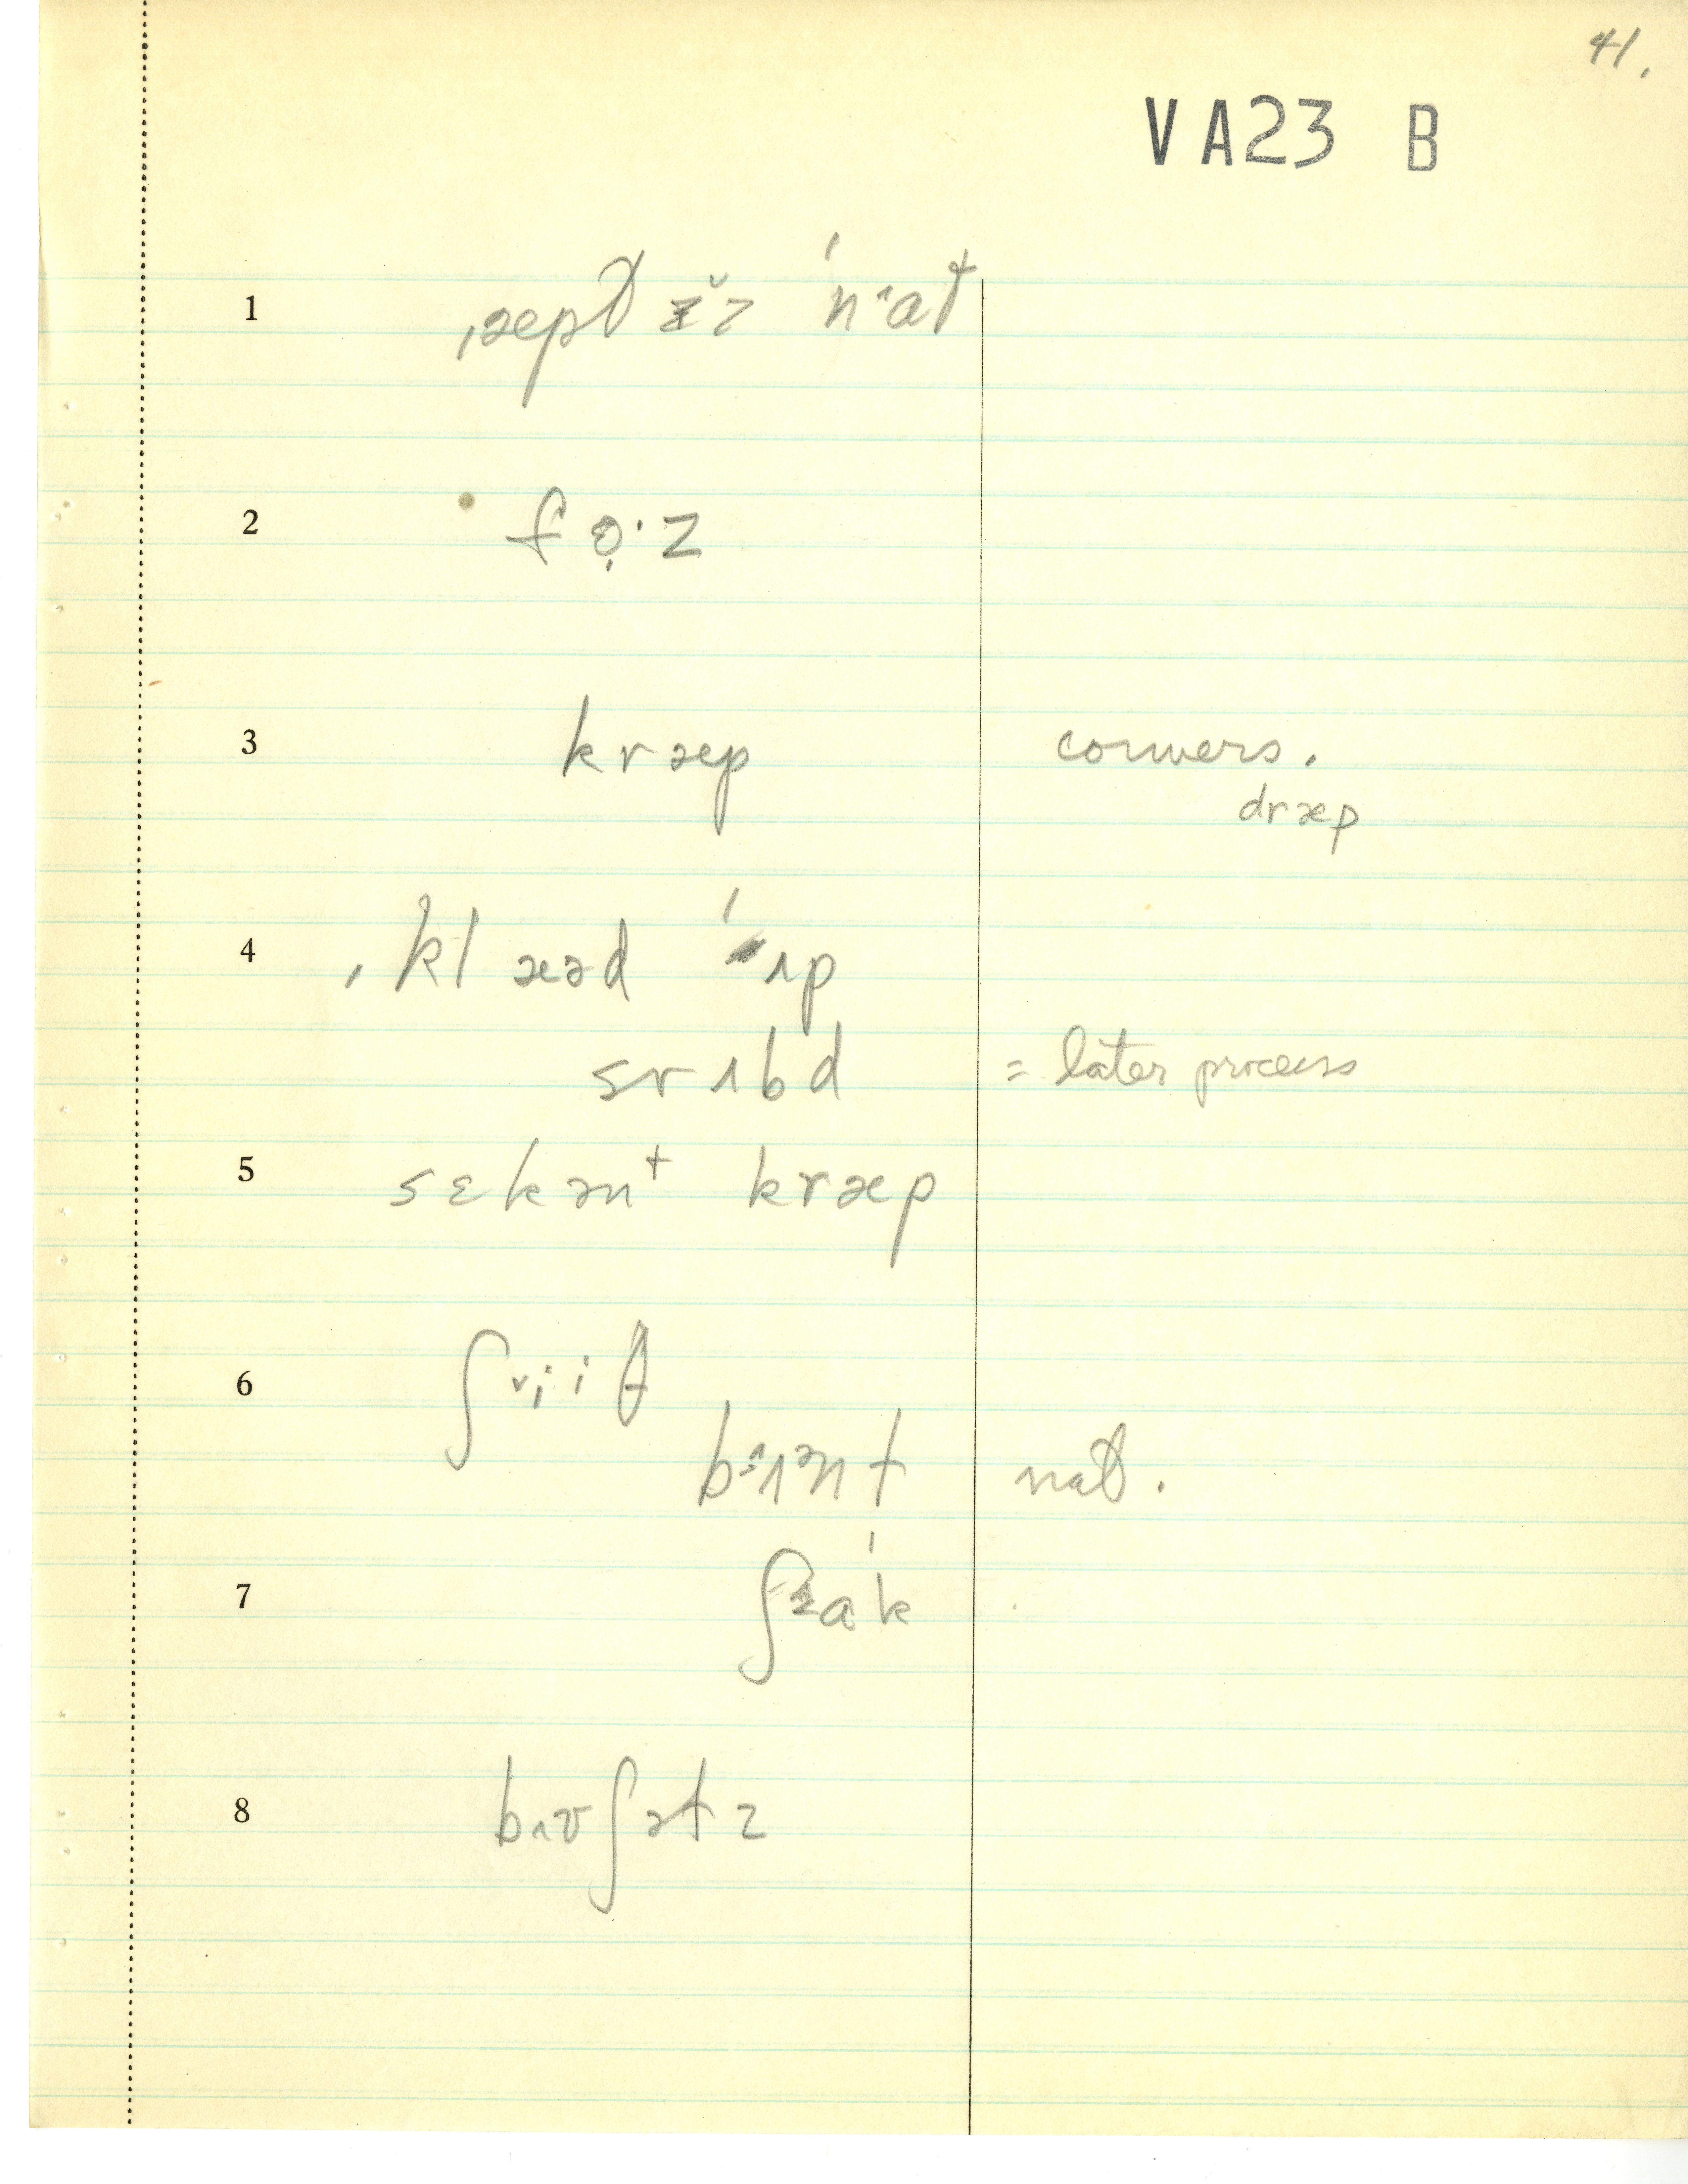 41.
VA23 B
1 ˌæpt̬ ɪ̆z ˈnɑt
2 f ọ· z
3 kræp conuers.
dræp
4 ˌklæəd ʌp
srʌbd = later process
5 sɛkənt kræp
6 ʃri·iθ
b ʌənt nat̬.
7 ʃɑk
8 bʌʊʃətz